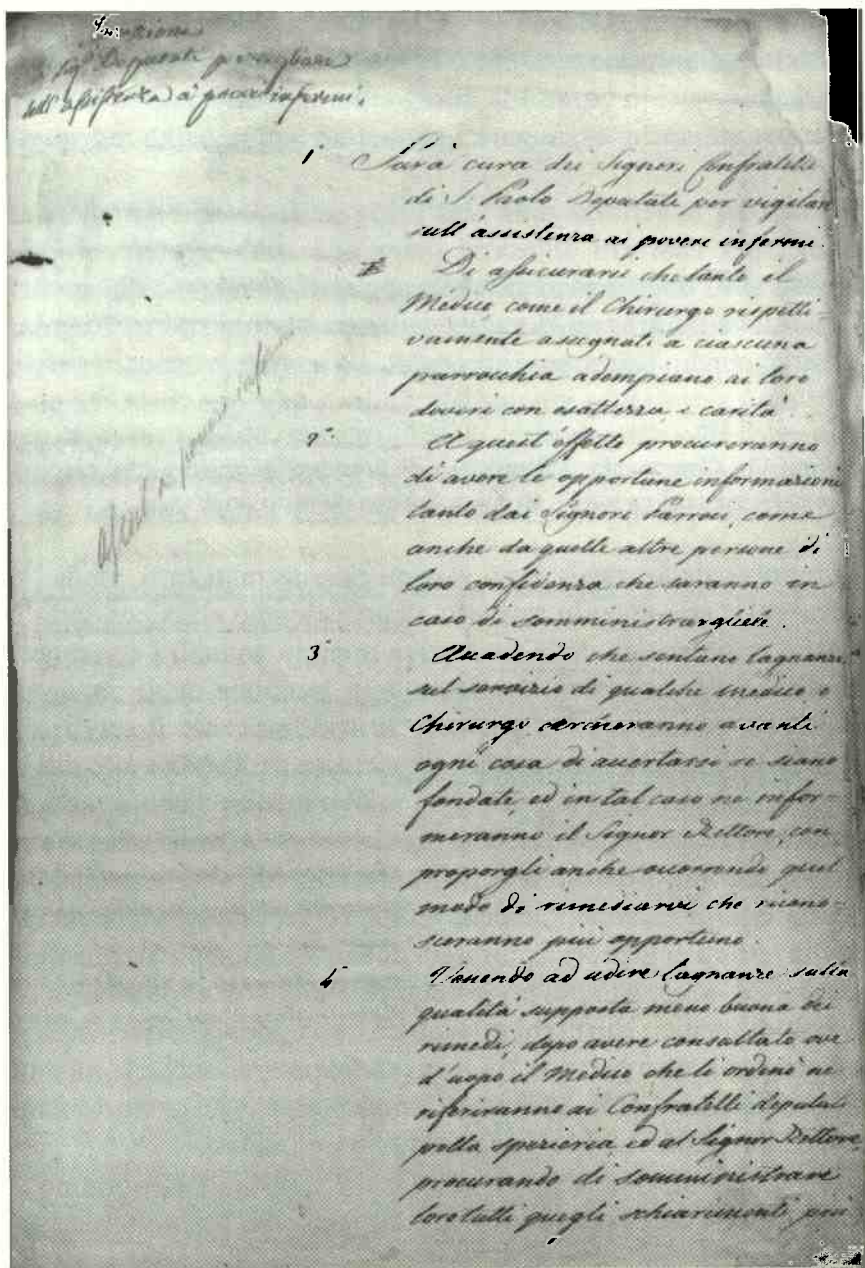 Sig.i Deputati per vigilare
sull'assistenza a' poveri infermi.
1° Sarà cura dei Signori Confratelli
di S. Paolo Deputati per vigilare
sull'assistenza ai poveri infermi.
Di assicurarsi che tanto il
Medico come il Chirurgo rispetti-
vamente assegnati a ciascuna
parrocchia adempiano ai loro
doveri con esattezza, e carità.
2° A quest'effetto procureranno
di avere le opportune informazioni
tanto dai Signori Parroci, come
anche da quelle altre persone di
loro confidenza che saranno in
caso di somministrargliele.
3° Accadendo che sentano lagnanze
sul servizio di qualche medico o
Chirurgo cercheranno avanti
ogni cosa di accertarsi se siano
fondate, ed in tal caso ne infor-
meranno il Signor Rettore, con
proporgli anche occorrendo quel
modo di rimediarvi che ricono-
sceranno più opportuno.
4 Venendo ad udire lagnanze sulla
qualità supposta meno buona dei
rimedi, dopo avere consultato ove
d'uopo il Medico che li ordinò ne
riferiranno ai Confratelli deputati
pella spezieria, ed al Signor Rettore,
procurando di somministrare
loro tutti quegli schiarimenti più
poveri infermi